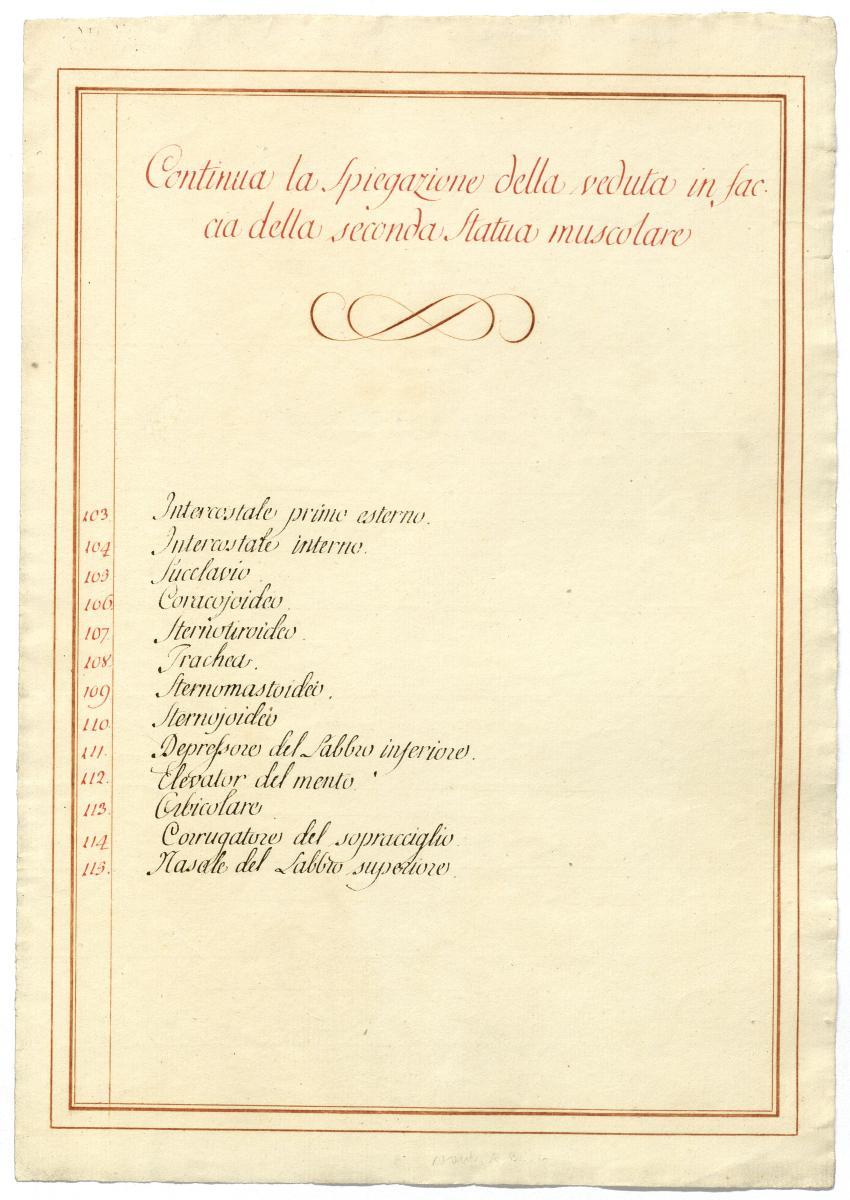 Continua la Spiegazione della veduta in fac-
cia della seconda Statua muscolare
103. Intercostale primo esterno.
104 Intercostale interno.
105 Succlavio.
106 Coracojoideo.
107. Sternotiroideo.
108. Trachea.
109 Sternomastoideo.
110. Sternojoideo
111. Depressore del Labbro inferiore.
112. Elevator del mento.
113. Orbicolare
114 Corrugatore del sopracciglio.
115. Nasale del Labbro superiore.